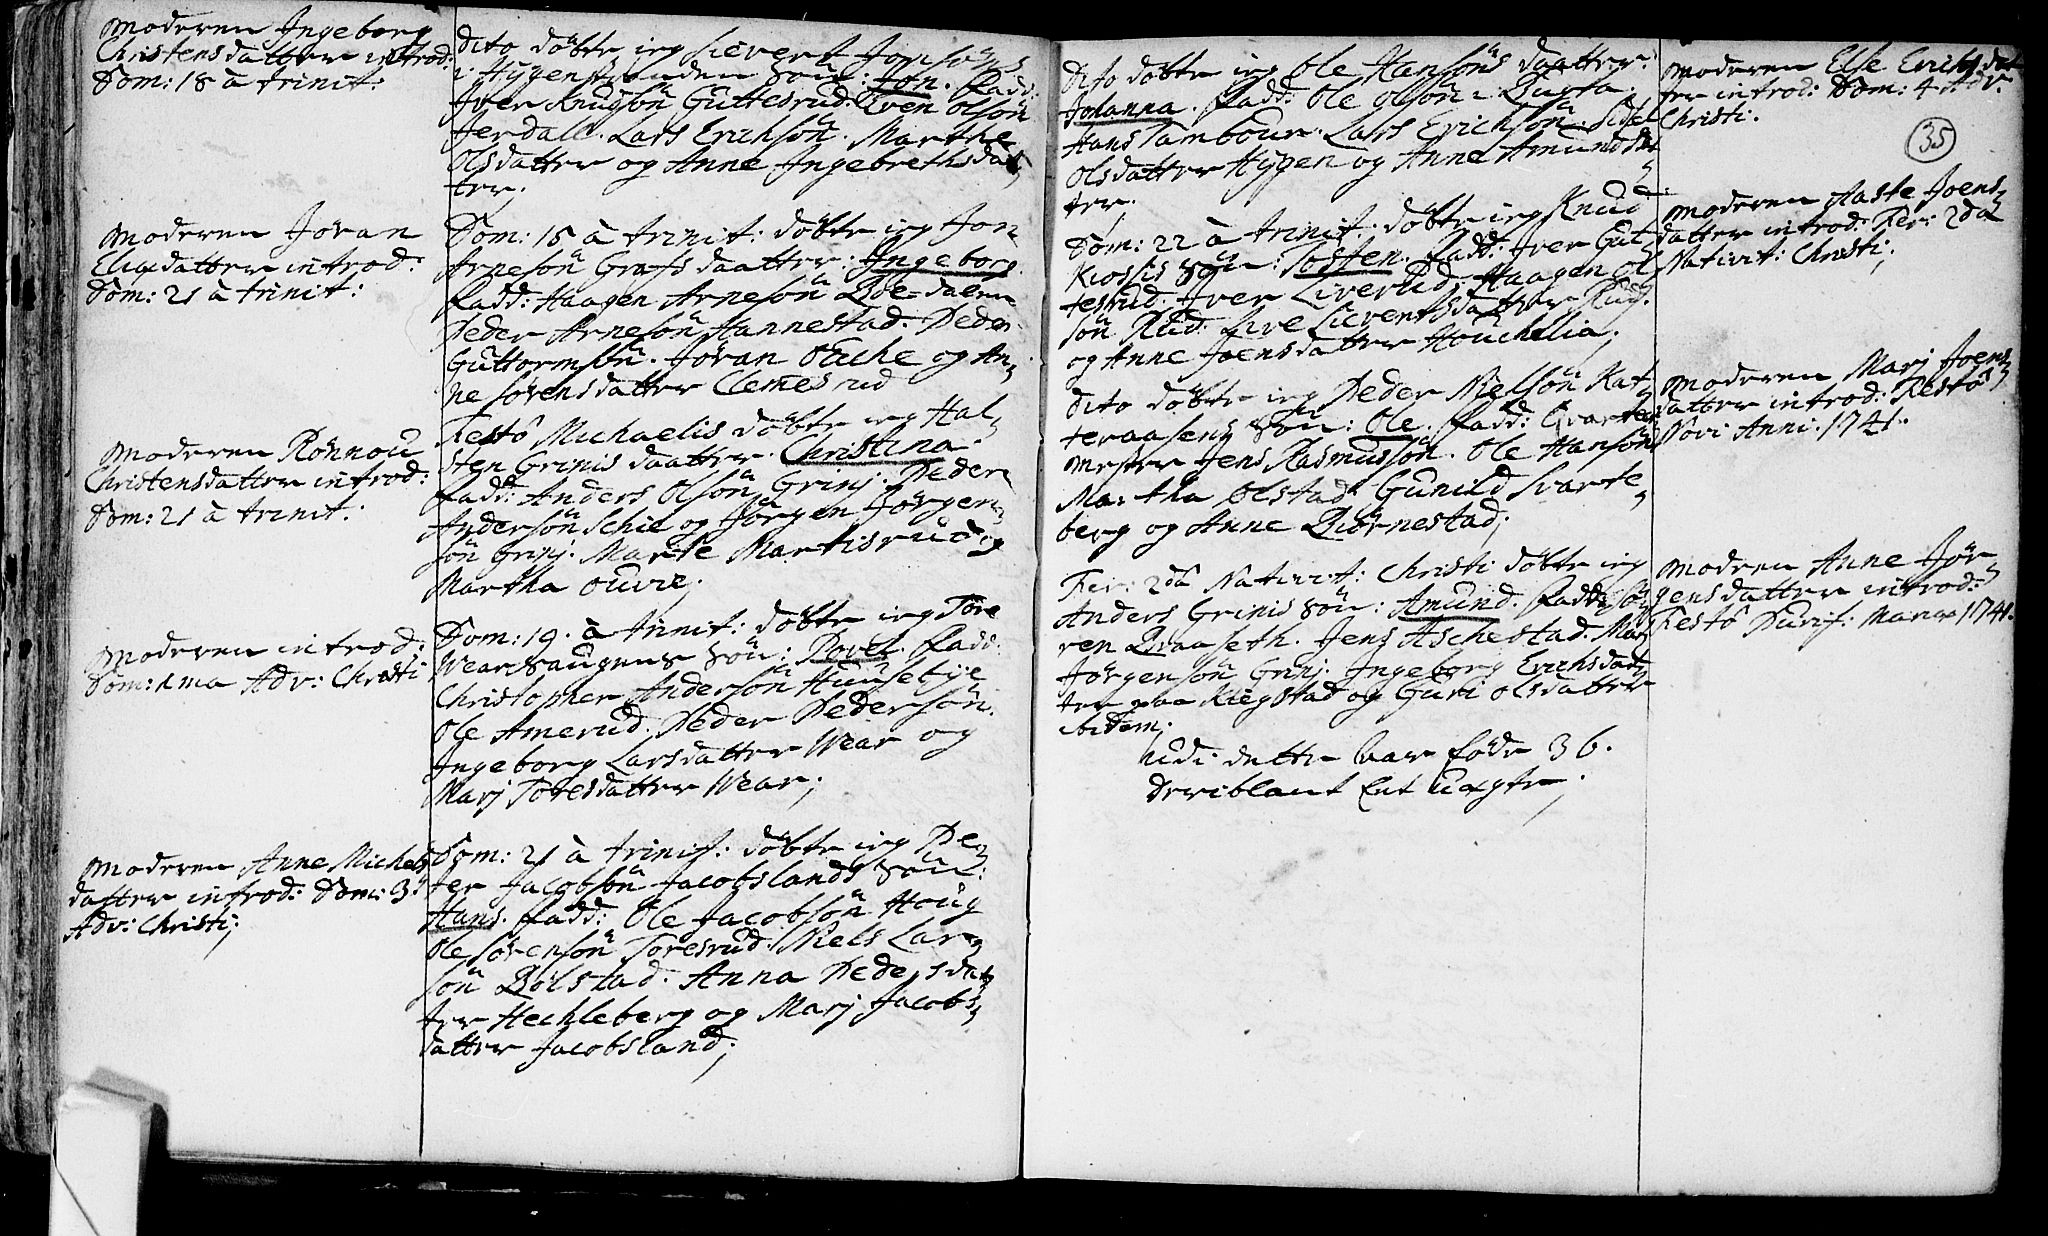 Moderen Ingeborg
Christensdatter introd:
Dom: 18 à trinit:
Moderen Jöran
datter introd:
Dom: 21 à trinit:
Moderen Rönnou
Christensdatter introd:
Dom: 21 à trinit:
Moderen introd:
Dom: 1ma Adv: Christi
Moderen Anne Michels
datter introd: Dom: 3.
Adv: Christi;
dito döbte ieg Sievert Jonsöns
i Hÿgenstranden Sön: Jon. Fadd:
Iver Knudsön Guttesrud. Even Olsön
Jerdall. Lars Erichsön. Marthe
Olsdatter og Anne Ingebrethsdat
ter;
Dom: 15 à trinit: döbte ieg Jon
Arnesön Grafs daatter: Ingeborg
Fadd: Haagen Arnesön Böe-dalen
Peder Arnesön Hannestad. Peder
Guttormsön. Jöran Ouche og An
ne Sörensdatter Clemesrud
Festô Michaelis döbte ieg Hal
sten Grinis daatter. Christina.
Fadd: Anders Olsön Grinj. Peder
Andersön Schie og Jörgen Jörgen
sön Grinj. Marte Martisrud og
Martha Ouvre;
Dom: 19. à trinit: döbte ieg Tore
Wearsaugens Sön: Povel. Fadd:
Christopher Andersön Huusebÿe
Ole Amerud. Peder Pedersön.
Ingeborg Larsdatter Wear og
Marj Toresdatter Wear;
Dom: 21 à trinit: döbte ieg Pe
der Jacobsön Jacobslands Sön:
Hans. Fadd: Ole Jacobsön Houg
Ole Sörensön Toresrud. Niels Lar
sön Bölstad. Anna Pedersdat
ter Hechleberg og Marj Jacobs
datter Jacobsland;
35
Dito döbte ieg Ole Hansöns daatter:
Johanna. Fadd: Ole Olsön i Burta.
Hans Tambour. Lars Erichsön. Sidel
Olsdatter Hÿgen og Anne Amundsdat
ter;
Dom: 22 à trinit: döbte ieg Knud
Kioslis Sön: Tosten. Fadd: Iver Gut
tesrud. Iver Liverud. Haagen Ol
sön Rud. Live Sievertsdatter Rud.
og Anne Joensdatter Houchelia;
dito döbte ieg Peder Nielsön Kat
teraasens Sön: Ole. Fadd: Qvarteer
mester Jens Rasmussön. Ole Hansön
Martha Olstad. Gunild Svarte
berg og Anne Biörnestad;
Fer: 2da Nativit: Christi döbte ieg
Anders Grinis Sön: Amund. Fadd: Sö
ren Braaseth. Jens Aschestad. Mar
Jörgensön Grinj. Ingeborg Erichsdat
ter paa Kiegstad og Guri Olsdatter
ibidem;
udi dette aar föde 36.
deriblant eet uægte;
Moderen Else Erichsdat
ter introd: Dom: 4 Adv:
Christi.
Moderen Aaste Joens
datter introd: Fer: 2da
Nativit: Christi;
Moderen Marj Joens
datter introd: Festô
Novi Anni. 1741.
Modren Anne Jör
gensdatter introd:
Festô Purif: Mariæ 1741.